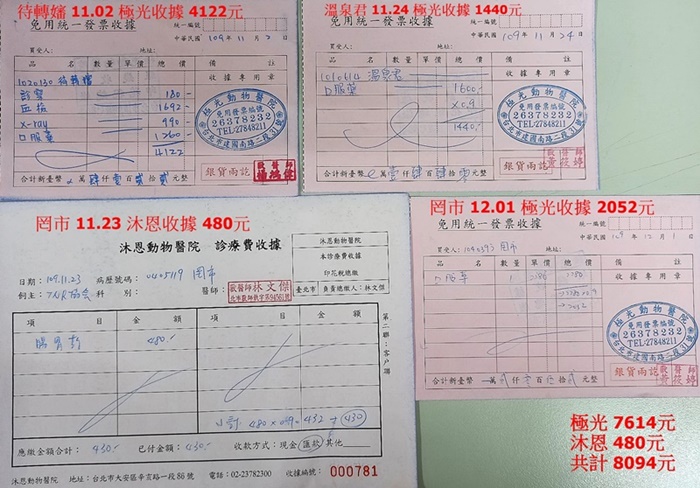 待轉嬸 11.02 極光收據 4122元
免用統一發票收據
統一編號
中華民國 109年 11月 2日
買受人: 地址:
品名 數量 單價 總價 備註
1020130 待轉嬸
診察 180-
血檢 1692-
x-ray 990-
口服藥 1260-
4122
收據專用章
極光動物醫院
免用發票編號
26378232
TEL:27848211
台北市建國南路二段31號
銀貨兩訖
合計新臺幣 萬 肆 仟 壹 百 貳 拾 貳 元整
溫泉君 11.24 極光收據 1440元
免用統一發票收據
統一編號
中華民國 109年 11月 24日
買受人: 地址:
品名 數量 單價 總價 備註
溫泉君
口服藥 1600-
x0.9
1440-
收據專用章
極光動物醫院
免用發票編號
26378232
TEL:27848211
台北市建國南路二段31號
銀貨兩訖
合計新臺幣 萬 壹 仟 肆 百 肆 拾 零 元整
罔市 11.23 沐恩收據 480元
沐恩動物醫院 診療費收據
沐恩動物醫院
本診療費收據
印花稅總繳
臺北市 負責總繳人:林文傑
日期:109.11.23 病歷號碼:0405119 罔市
飼主: 協會 科別: 醫師:
獸醫師林文傑
項目 金額 項目 金額
480-
小計 480x0.9=432→430
第二聯:客戶聯
應繳金額合計:430- 已付金額:430- 收款方式:現金 匯款 其他
沐恩動物醫院 地址:台北市大安區辛亥路一段86號 電話:02-23782300 收據編號: 000781
罔市 12.01 極光收據 2052元
免用統一發票收據
統一編號
中華民國 109年 12月 1日
買受人: 罔市 地址:
品名 數量 單價 總價 備註
口服藥 1 2280 2280
→2280x0.9
→2052
收據專用章
極光動物醫院
免用發票編號
26378232
TEL:27848211
台北市建國南路二段31號
銀貨兩訖
合計新臺幣 萬 貳 仟 零 百 伍 拾 貳 元整
極光 7614元
沐恩 480元
共計 8094元